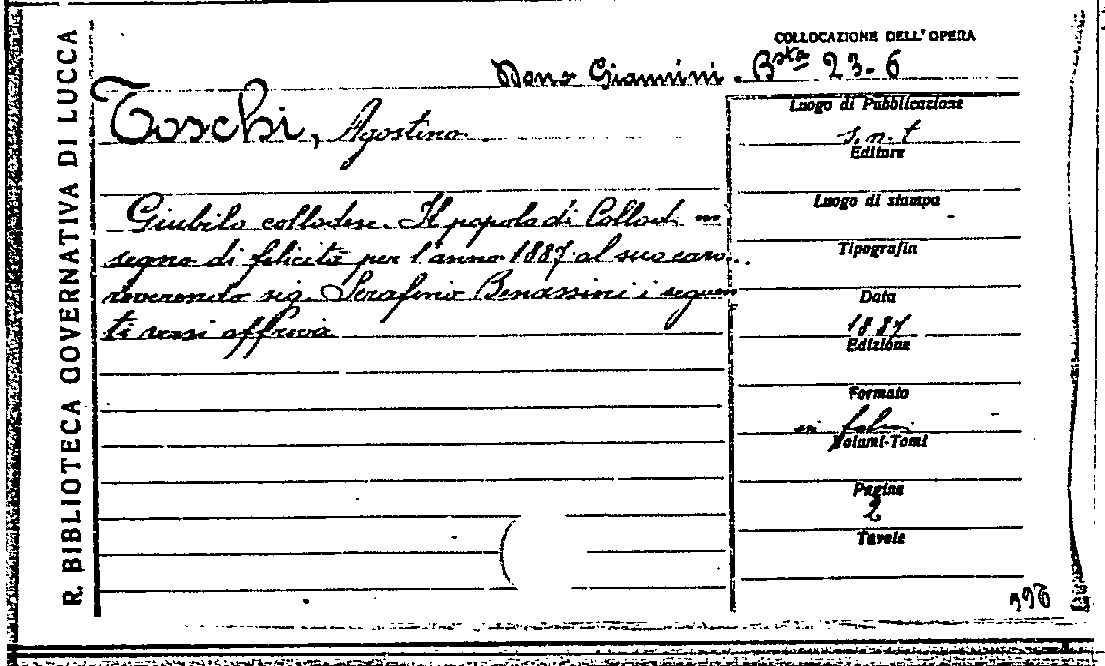 R. BIBLIOTECA GOVERNATIVA DI LUCCA
COLLOCAZIONE DELL' OPERA
Dono Giannini. Bsta 23-6
Toschi, Agostino
Giubilo collodese. Il popolo di Collodi in
segno di felicità per l'anno 1887 al suo caro
reverendo sig. Serafino Benassini i seguen
ti versi offriva
Luogo di Pubblicazione
s. n. t
Editore
Luogo di stampa
Tipografia
Data
1887
Edizione
Formato
in folio
Volumi-Tomi
Pagine
2
Tavole
396